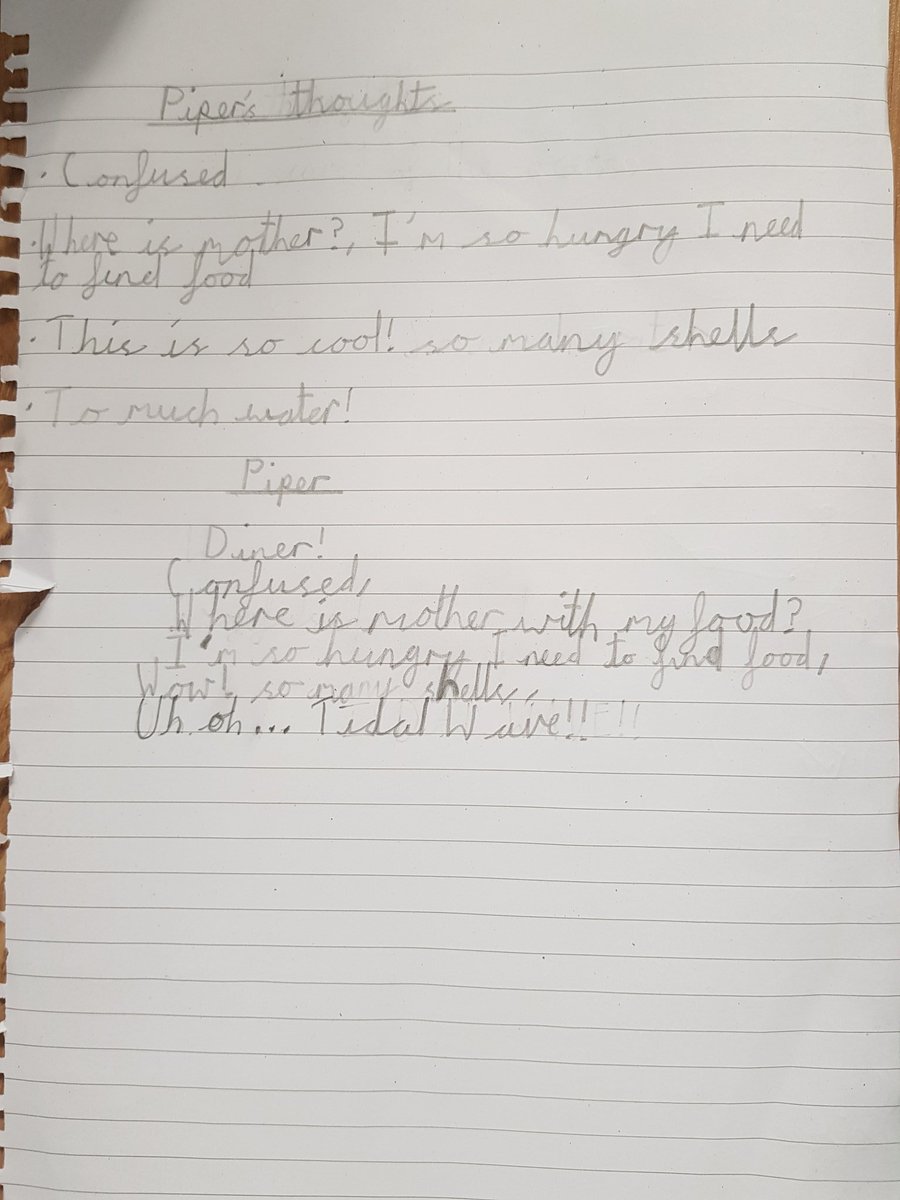 Piper's thoughts
· Confused
· Where is mother?, I'm so hungry I need
to find food
· This is so cool! so many shells
· To much water!
Piper
Diner!
Confused,
Where is mother with my food?
I'm so hungry I need to find food,
Wow! so many shells,
Uh oh... Tidal Wave!!